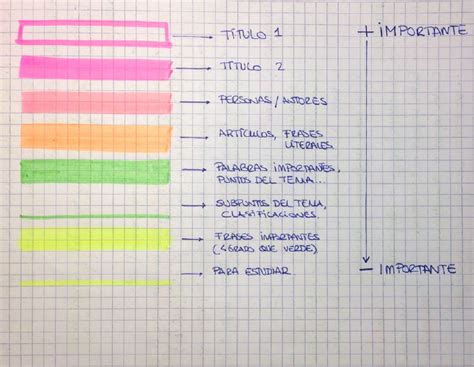 TÍTULO 1
+ IMPORTANTE
TÍTULO 2
PERSONAS/AUTORES
ARTÍCULOS, FRASES
LITERALES
PALABRAS IMPORTANTES,
PUNTOS DEL TEMA...
SUBPUNTOS DEL TEMA,
CLASIFICACIONES
FRASES IMPORTANTES
(<GRADO QUE VERDE)
PARA ESTUDIAR
- IMPORTANTE